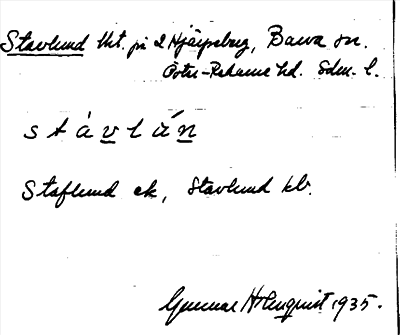 Stavlund tht. på 2 Hjälpsberg, Barva sn.
Öster-Rekarne hd. Sdm. l.
s t à v l á n
Staflund ek, Stavlund kb.
Gunnar Holmqvist 1935.